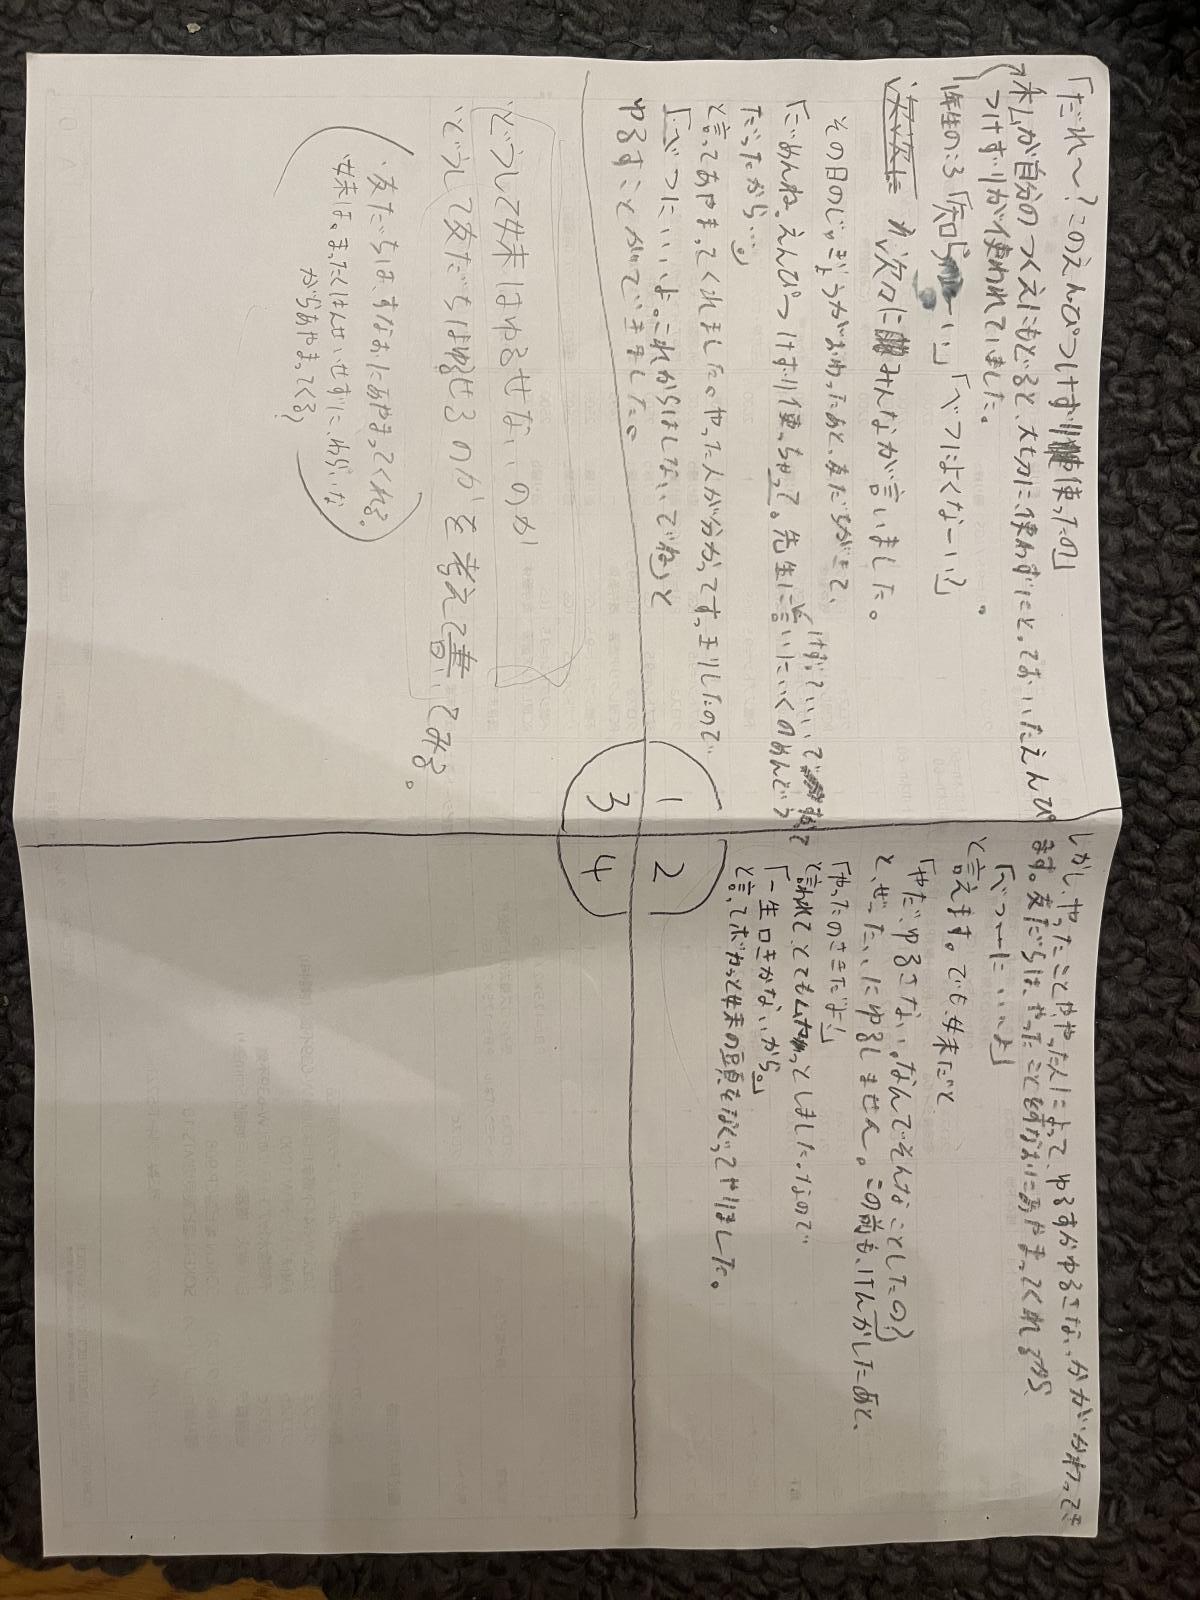 「だれ～？このえんぴつけずり使ったの」
私が自分のつくえにもどると、大切に使わずにとっておいたえんぴ
つけずりが使われていました。
1年生のころ「知らなーい」「べつによくなーい？」
次々に みんなが言いました。
その日のじゅぎょうがおわったあと、友だちがきて、
「ごめんね。えんぴつけずり使っちゃって。先生に言いにいくのめんどう
けずっていいで
だったから…。」
と言ってあやまってくれました。やった人が分かってすっきりしたので
「べつにいいよ。これからはしないでね」と
ゆるすことができました。
1
しかし、やったことややった人によって、ゆるすかゆるさないかがかわってき
ます。友だちは、やったことをすなおにあやまってくれるから、
「べつーにいいよ」
と言えます。でも、妹だと
「やだ、ゆるさない。なんでそんなことしたの？」
と、ぜったいにゆるしません。この前も、けんかしたあと、
「やったのさきだよ」
と言われて、とてもムカッとしました。なので
「一生口きかないから。」
と言ってボカッと妹の頭をなぐってやりました。
2
どうして妹はゆるせないのか
どうして友だちはゆるせるのかを考えて書いてみる。
・友だちは、すなおにあやまってくれる。
妹は、まったくはんせいせずに、わらいな
がらあやまってくる。
3
4